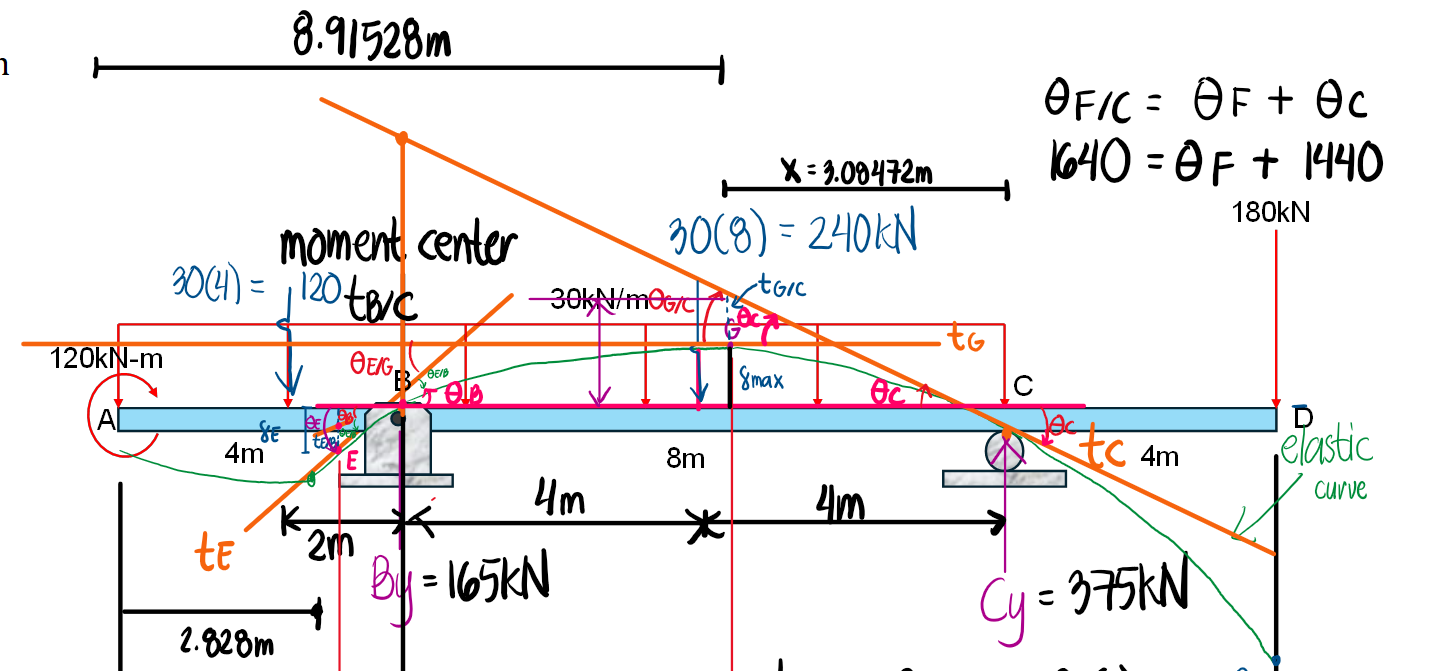 8.91528m
n
θF/C = θF + θC
1640 = θF + 1440
x = 3.08472m
180kN
30(8) = 240kN
moment center
30(4) = 120
tB/C
30kN/m
θG/C
tG/C
θC
G
tG
120kN-m
θE/G
θE/B
B
θB
δmax
θC
C
A
δE
θE
θB
tE/B
E
θC
D
4m
8m
tC
4m
elastic
curve
4m
4m
tE
2m
By = 165kN
Cy = 375kN
2.828m